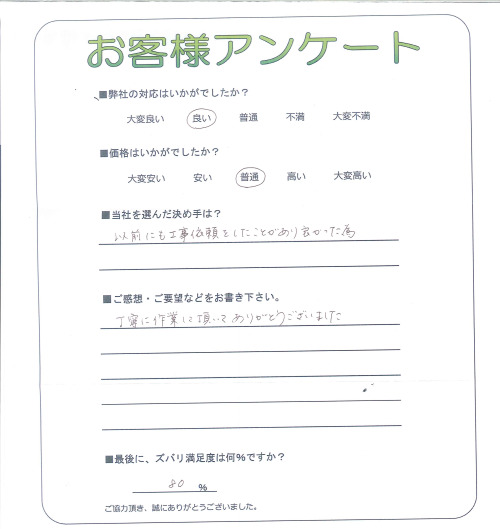 お客様アンケート
■弊社の対応はいかがでしたか？
大変良い 良い 普通 不満 大変不満
■価格はいかがでしたか？
大変安い 安い 普通 高い 大変高い
■当社を選んだ決め手は？
以前にも工事依頼をしたことがあり良かった為
■ご感想・ご要望などをお書き下さい。
丁寧に作業して頂いてありがとうございました
■最後に、ズバリ満足度は何%ですか？
80 %
ご協力頂き、誠にありがとうございました。